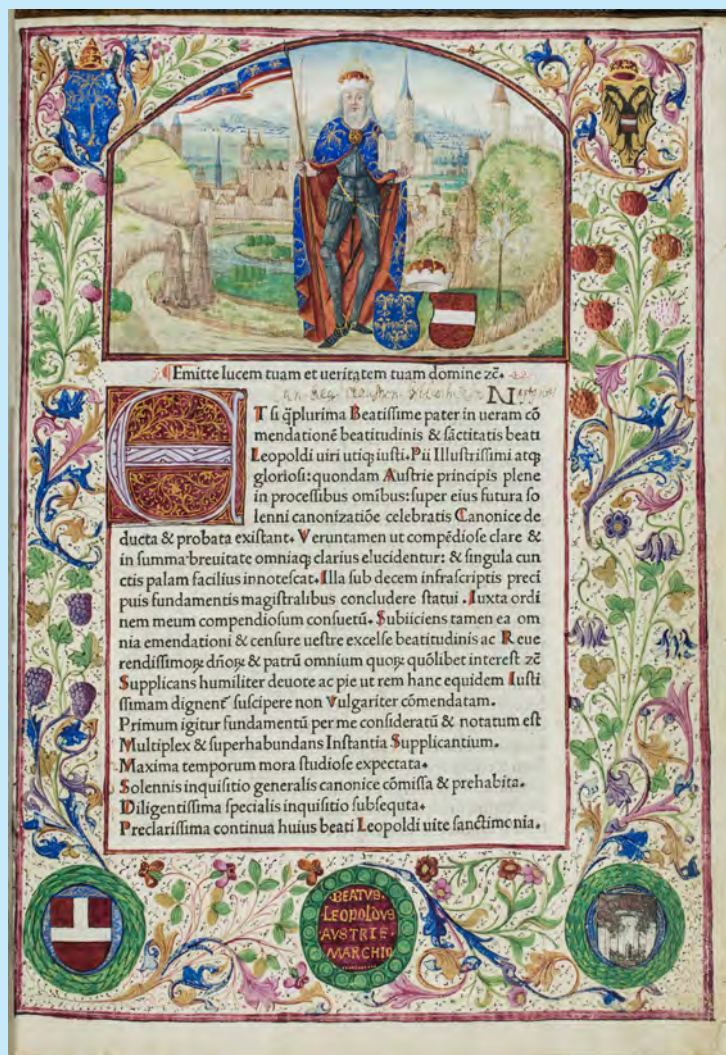 Emitte lucem tuam et ueritatem tuam domine zc̄.
ET si q̄plurima Beatissime pater in ueram cō
mendationē beatitudinis & sāctitatis beati
Leopoldi uiri utiqꝫ iusti. Pii Illustrissimi atqꝫ
gloriosi: quondam Austrie principis plene
in processibus omibus: super eius futura so
lenni canonizatiōe celebratis Canonice de
ducta & probata existant. Veruntamen ut compēdiose clare &
in summa breuitate omniaqꝫ clarius elucidentur: & singula cun
ctis palam facilius innotescat. Illa sub decem infrascriptis preci
puis fundamentis magistralibus concludere statui. Iuxta ordi
nem meum compendiosum consuetū. Subiiciens tamen ea om
nia emendationi & censure uestre excelse beatitudinis ac Reue
rendissimoꝝ dn̄oꝝ & patrū omnium quoꝝ quōlibet interest zc̄
Supplicans humiliter deuote ac pie ut rem hanc equidem Iusti
ssimam dignent᷑ suscipere non Vulgariter cōmendatam.
Primum igitur fundamentū per me consideratū & notatum est
Multiplex & superhabundans Instantia Supplicantium.
Maxima temporum mora studiose expectata.
Solennis inquisitio generalis canonice cōmissa & prehabita.
Diligentissima specialis inquisitio subsequta.
Preclarissima continua huius beati Leopoldi uite sanctimonia.
BEATVS
LEOPOLDVS
AVSTRIE
MARCHIO